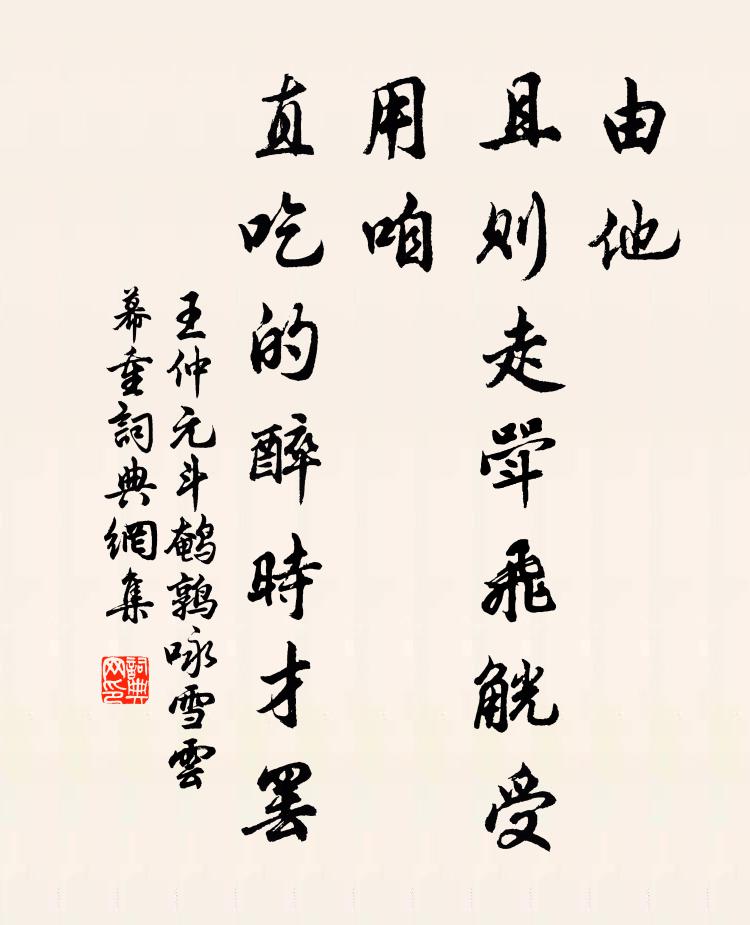 由他
且則走斝飛觥受
用咱
直吃的醉時才罷
王仲元斗鹌鹑咏雪雲
幕重詞典網集
詞典网印